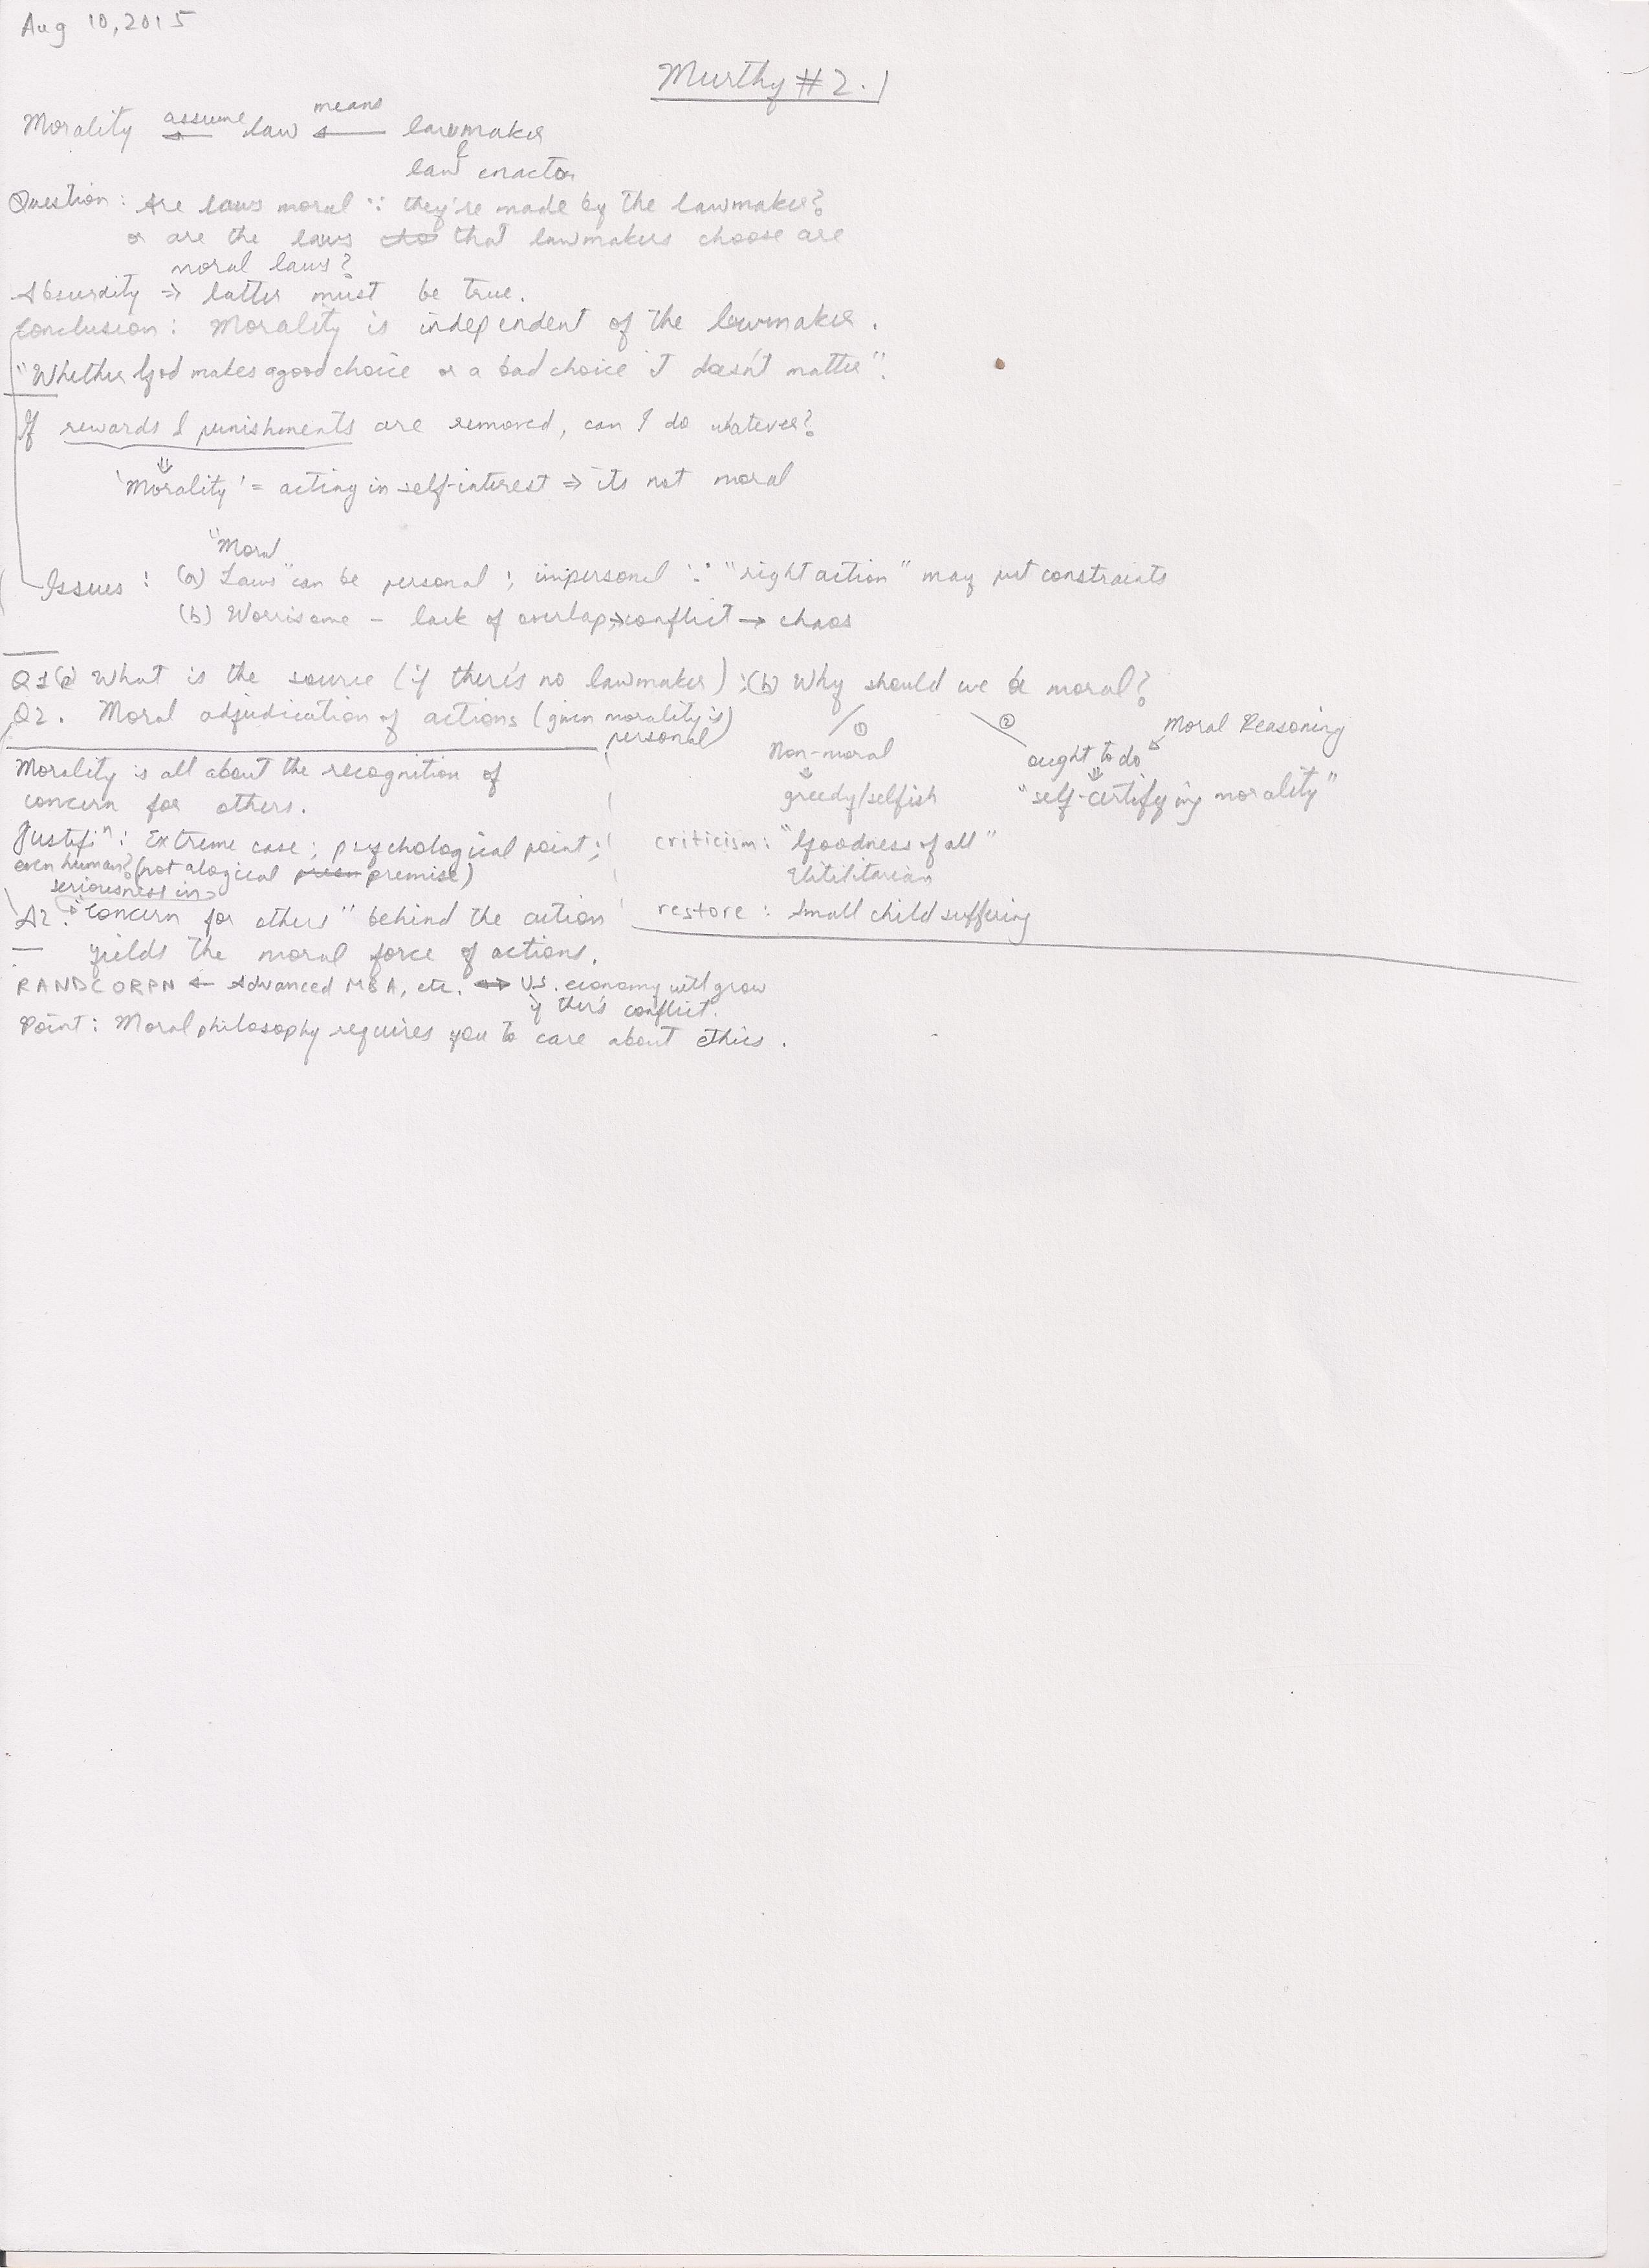 Aug 10, 2015
Murthy #2.1
means
Morality assume law ← lawmaker
&
law enactor
Question: Are laws moral ∵ they're made by the lawmaker?
or are the laws that lawmakers choose are
moral laws?
Absurdity ⇒ latter must be true.
Conclusion: Morality is independent of the lawmaker.
"Whether God makes a good choice or a bad choice it doesn't matter".
If rewards & punishments are removed, can I do whatever?
⇓
'Morality' = acting in self-interest ⇒ its not moral
"Moral
Issues: (a) Laws" can be personal; impersonal ∵ "right action" may put constraints
(b) Worrisome - lack of overlap → conflict → chaos
Q1(a) What is the source (if there's no lawmaker); (b) Why should we be moral?
Q2. Moral adjudication of actions (given morality is
personal)
① ② Moral Reasoning
Non-moral
⇓
greedy/selfish
ought to do
⇓
"self-certifying morality"
Morality is all about the recognition of
concern for others.
Justifⁿ: Extreme case; psychological point;
even human? (not a logical premise)
criticism: "Goodness of all"
Utilitarian
seriousness in
A2. "concern for others" behind the action
yields the moral force of actions.
restore: small child suffering
RANDCORPN ← Advanced MBA, etc. ↔ U.S. economy will grow
if there's conflict.
Point: Moral philosophy requires you to care about ethics.